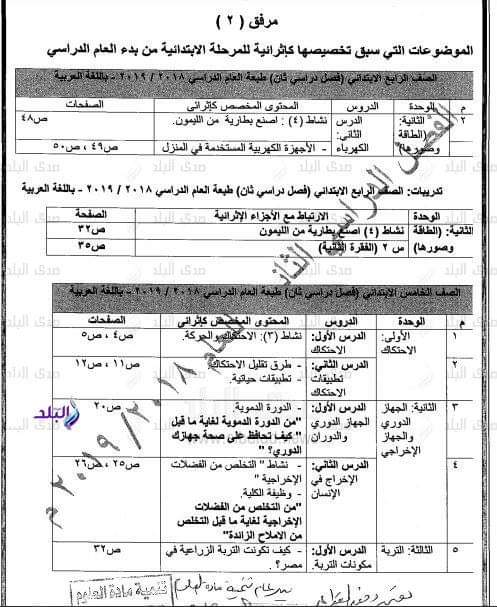 مرفق ( ٢ )
الموضوعات التي سبق تخصيصها كإثرائية للمرحلة الابتدائية من بدء العام الدراسي
الصف الرابع الابتدائي (فصل دراسي ثان) طبعة العام الدراسي ٢٠١٨ / ٢٠١٩ - باللغة العربية
م الوحدة الدروس المحتوى المخصص كإثرائي الصفحات
٢ الثانية: الدرس نشاط (٤) : اصنع بطارية من الليمون. ص٤٨
(الطاقة الثاني:
وصورها) الكهرباء - الأجهزة الكهربية المستخدمة في المنزل ص٤٩ ، ص٥٠
تدريبات: الصف الرابع الابتدائي (فصل دراسي ثان) طبعة العام الدراسي ٢٠١٨ / ٢٠١٩ - باللغة العربية
الوحدة الارتباط مع الأجزاء الإثرائية الصفحة
الثانية: (الطاقة نشاط (٤) اصنع بطارية من الليمون ص٣٢
وصورها) س ٢ (الفقرة الثانية) ص٣٥
الصف الخامس الابتدائي (فصل دراسي ثان) طبعة العام الدراسي ٢٠١٨ / ٢٠١٩ - باللغة العربية
م الوحدة الدروس المحتوى المخصص كإثرائي الصفحات
١ الأولى: الدرس الأول: نشاط (٣): الاحتكاك والحركة. ص٤ ، ص٥
الاحتكاك الاحتكاك
٢ الدرس الثاني: - طرق تقليل الاحتكاك. ص١١ ، ص١٢
تطبيقات - تطبيقات حياتية.
الاحتكاك
٣ الثانية: الجهاز الدرس الأول: - الدورة الدموية. ص٢٠
الدوري الجهاز الدوري "من الدورة الدموية لغاية ما قبل
والجهاز والدوران " كيف تحافظ على صحة جهازك
الإخراجي الدوري؟"
٤ الدرس الثاني: - نشاط " التخلص من الفضلات ص٢٥ ، ص٢٦
الإخراج في الإخراجية "
الإنسان - وظيفة الكلية.
"من التخلص من الفضلات
الإخراجية لغاية ما قبل التخلص
من الاملاح الزائدة"
٥ الثالثة: التربة الدرس الأول: - كيف تكونت التربة الزراعية في ص٣٢
مكونات التربة. مصر؟
الفصل الدراسي الثاني للعام ٢٠١٨/٢٠١٩ م
البلد
صدى البلد
تنمية مادة العلوم